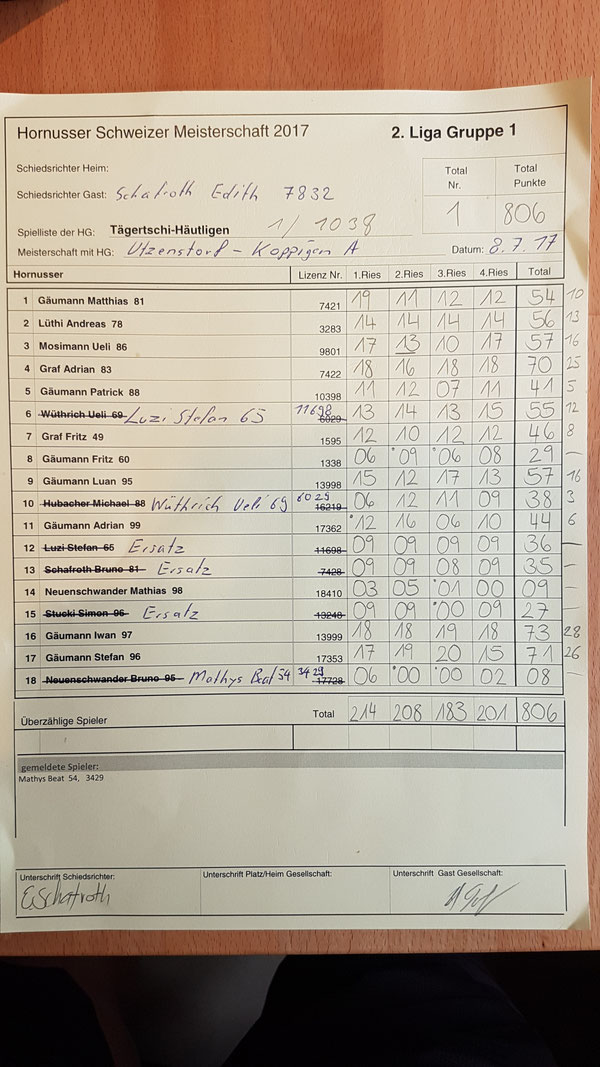 Hornusser Schweizer Meisterschaft 2017 2. Liga Gruppe 1
Schiedsrichter Heim:
Total Nr. Total Punkte
Schiedsrichter Gast: Schafroth Edith 7832
1 806
Spielliste der HG: Tägertschi-Häutligen 1/ 1038
Meisterschaft mit HG: Utzenstorf - Koppigen A Datum: 8.7.17
Hornusser Lizenz Nr. 1.Ries 2.Ries 3.Ries 4.Ries Total
1 Gäumann Matthias 81 7421 19 11 12 12 54 10
2 Lüthi Andreas 78 3283 14 14 14 14 56 13
3 Mosimann Ueli 86 9801 17 13 10 17 57 16
4 Graf Adrian 83 7422 18 16 18 18 70 25
5 Gäumann Patrick 88 10398 11 12 07 11 41 5
6 Wüthrich Ueli 69 Luzi Stefan 65 11698 6029 13 14 13 15 55 12
7 Graf Fritz 49 1595 12 10 12 12 46 8
8 Gäumann Fritz 60 1338 06 09 06 08 29 –
9 Gäumann Luan 95 13998 15 12 17 13 57 16
10 Hubacher Michael 88 Wüthrich Ueli 69 6029 16219 06 12 11 09 38 3
11 Gäumann Adrian 99 17362 12 16 06 10 44 6
12 Luzi Stefan 65 Ersatz 11698 09 09 09 09 36 –
13 Schafroth Bruno 81 Ersatz 7428 09 09 08 09 35 –
14 Neuenschwander Mathias 98 18410 03 05 01 00 09 –
15 Stucki Simon 96 Ersatz 13248 09 09 00 09 27 –
16 Gäumann Iwan 97 13999 18 18 19 18 73 28
17 Gäumann Stefan 96 17353 17 19 20 15 71 26
18 Neuenschwander Bruno 95 Mathys Beat 54 3429 17728 06 00 00 02 08 –
Überzählige Spieler Total 214 208 183 201 806
gemeldete Spieler:
Mathys Beat 54, 3429
Unterschrift Schiedsrichter: Unterschrift Platz/Heim Gesellschaft: Unterschrift Gast Gesellschaft:
E.Schafroth